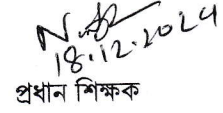 18.12.2024
প্রধান শিক্ষক